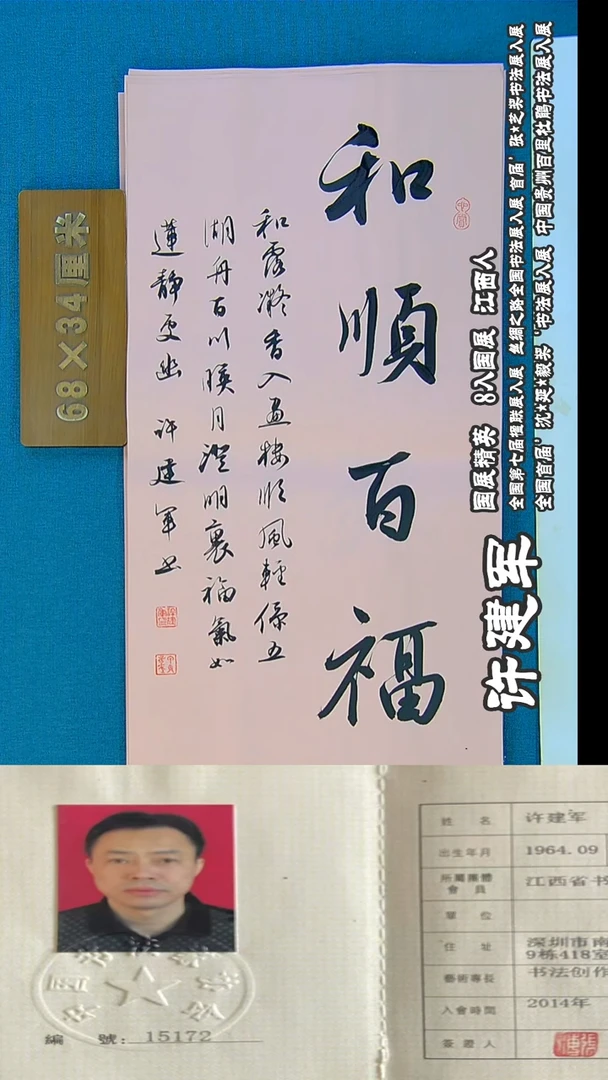 和順百福
和露凝香入畫樓順風輕係五
湖舟百川暎月澄明裏福氣如
蓮静更幽 许建军书
68×34厘米
许建军
国展精英 8入国展 江西人
全国第七届楹联展入展 丝绸之路全国书法展入展 首届'张★芝奖书法展入展
全国首届'沈★延★毅奖'书法展入展 中国贵州百里杜鹃书法展入展
編 號: 15172
姓 名 许建军
出生年月 1964.09
所屬團體會員 江西省书
單 位
住 址 深圳市南
9栋418室
藝術專長 书法创作
入會時間 2014年
簽證人